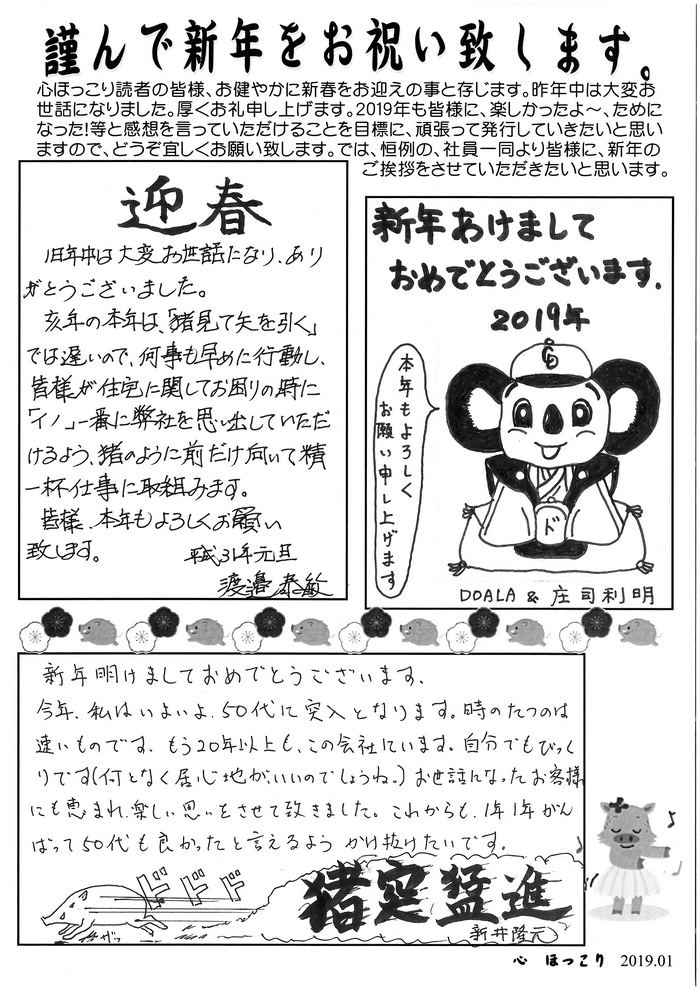 謹んで新年をお祝い致します。
心ほっこり読者の皆様、お健やかに新春をお迎えの事と存じます。昨年中は大変お
世話になりました。厚くお礼申し上げます。2019年も皆様に、楽しかったよ〜、ために
なった!等と感想を言っていただけることを目標に、頑張って発行していきたいと思い
ますので、どうぞ宜しくお願い致します。では、恒例の、社員一同より皆様に、新年の
ご挨拶をさせていただきたいと思います。
迎春
旧年中は大変お世話になり、あり
がとうございました。
亥年の本年は、「猪見て矢を引く」
では遅いので、何事も早めに行動し、
皆様が住宅に関してお困りの時に
「イノ」一番に弊社を思い出していただ
けるよう、猪のように前だけ向いて精
一杯仕事に取組みます。
皆様、本年もよろしくお願い
致します。
平成31年元旦
渡邉泰敏
新年あけまして
おめでとうございます.
2019年
本年もよろしく
お願い申し上げます
CD
ド
DOALA & 庄司利明
新年明けましておめでとうございます、
今年、私はいよいよ、50代に突入となります。時のたつのは
速いものです、もう20年以上も、この会社にいます。自分でもびっく
りです(何となく居心地がいいのでしょうね。)お世話になったお客様
にも恵まれ、楽しい思いをさせて致きました。これからも、1年1年がん
ばって50代も良かったと言えるよう かけ抜けたいです。
ドドド
猪突猛進
新井隆元
心 ほっこり 2019.01